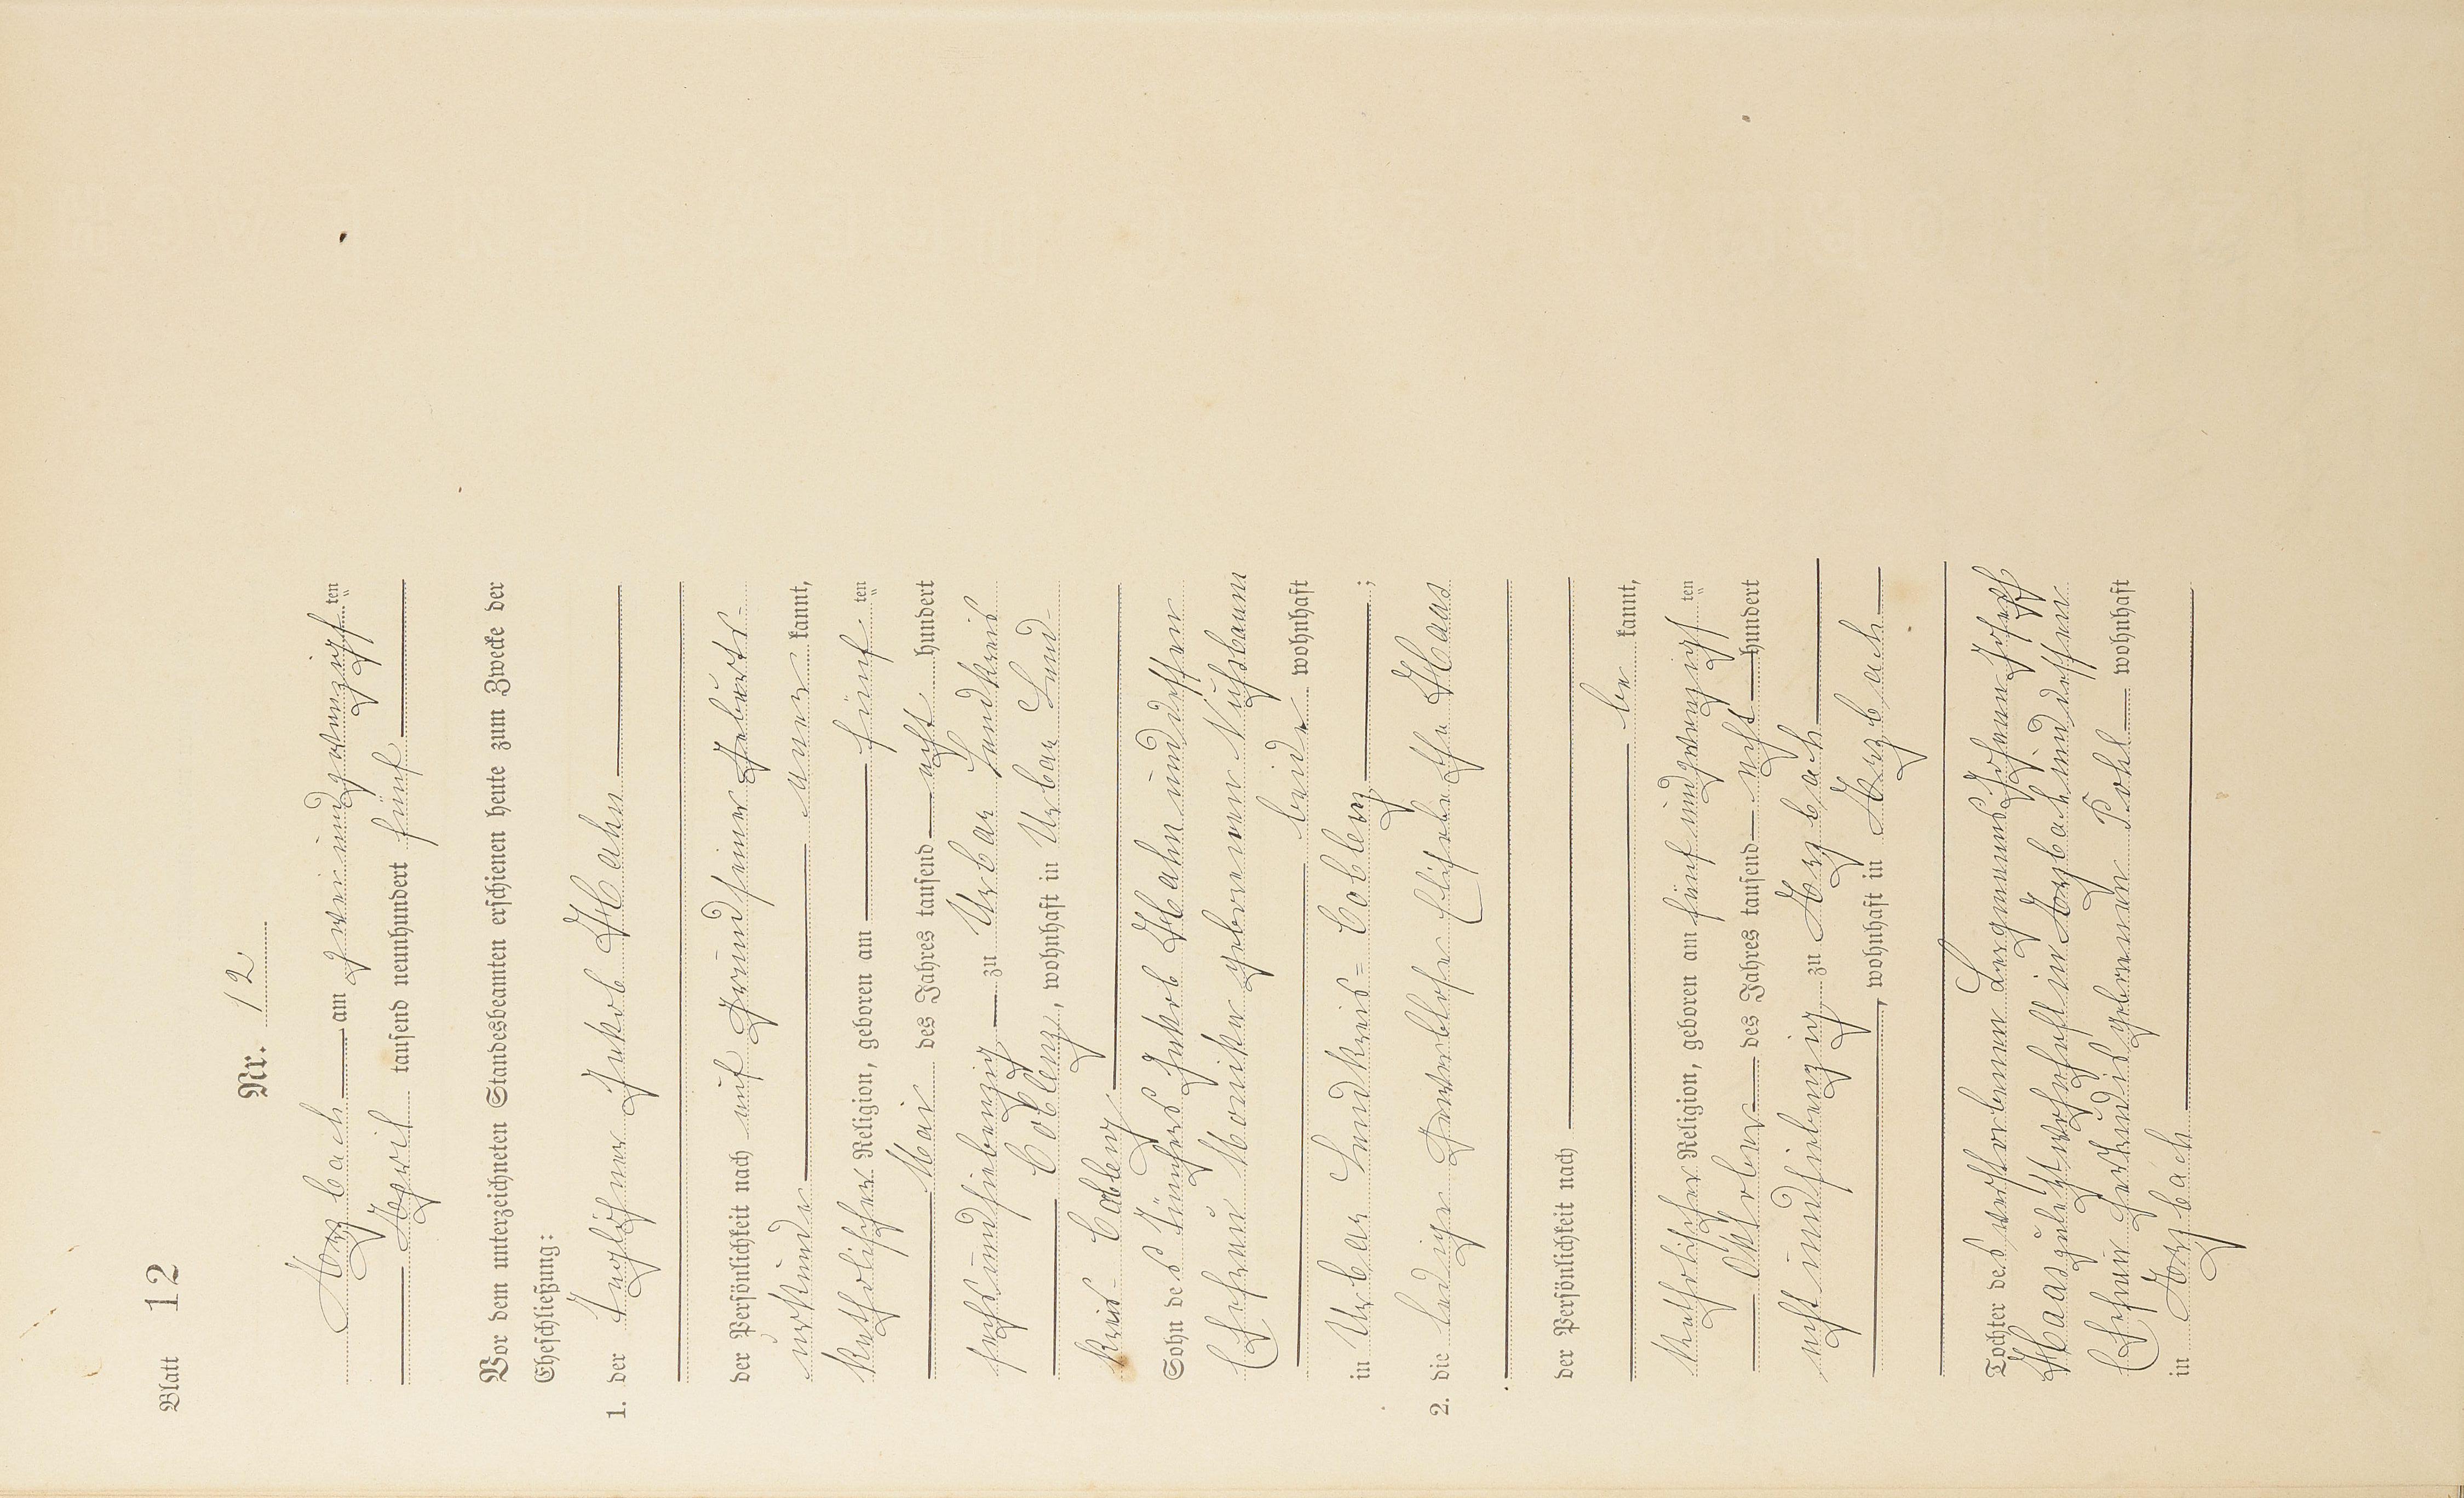 Blatt 12
Nr. 12
Arzbach am zweiundzwanzigsten
April tausend neunhundert fünf
Vor dem unterzeichneten Standesbeamten erschienen heute zum Zwecke der
Eheschließung:
1. der Taglöhner Jakob Hahn
der Persönlichkeit nach auf Grund seiner Geburts-
urkunde aner kannt,
katholischer Religion, geboren am fünf ten
Mai des Jahres tausend acht hundert
sechsundsiebenzig zu Urbar Landkreis
Coblenz, wohnhaft in Urbar Land-
kreis Coblenz
Sohn des Tünchers Jakob Hahn und dessen
Ehefrau Monika geborenen Nußbaum
beide wohnhaft
in Urbar Landkreis=Coblenz ;
2. die ledige Gewerblose Elisabetha Haas
der Persönlichkeit nach
be kannt,
katholischer Religion, geboren am fünfundzwanzigsten
Oktober des Jahres tausend acht hundert
achtundsiebenzig zu Arzbach
, wohnhaft in Arzbach
Tochter des verstorbenen Bergmanns Johann Josef
Haas zuletzt wohnhaft in Arzbach und dessen
Ehefrau Gertrudis geborenen Pohl wohnhaft
in Arzbach